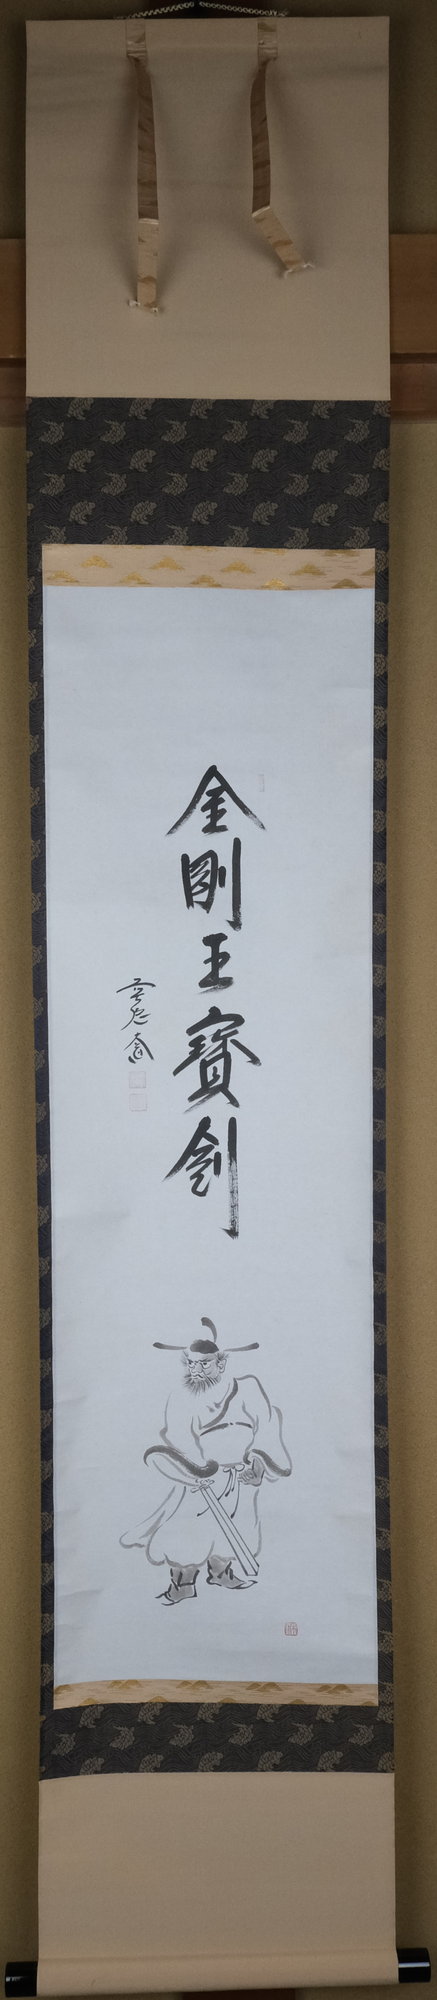 金剛王寳剣